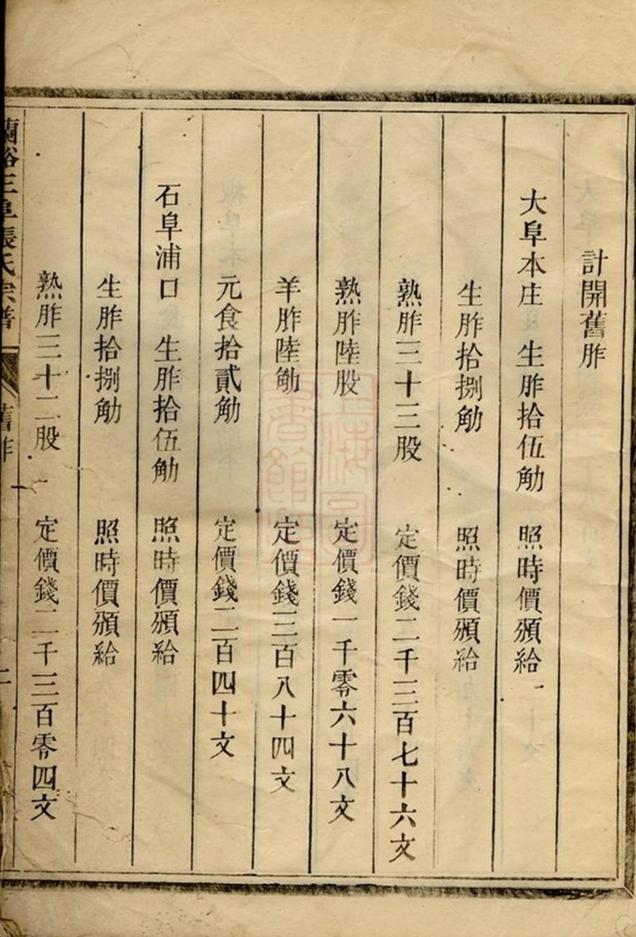 計開舊胙
大阜本庄 生胙拾伍觔 照時價頒給
生胙拾捌觔 照時價頒給
熟胙三十三股 定價錢二千三百七十六文
熟胙陸股 定價錢一千零六十八文
羊胙陸觔 定價錢三百八十四文
元食拾貳觔 定價錢二百四十文
石阜浦口 生胙拾伍觔 照時價頒給
生胙拾捌觔 照時價頒給
熟胙三十二股 定價錢二千三百零四文
蘭谿王阜張氏宗譜 舊胙